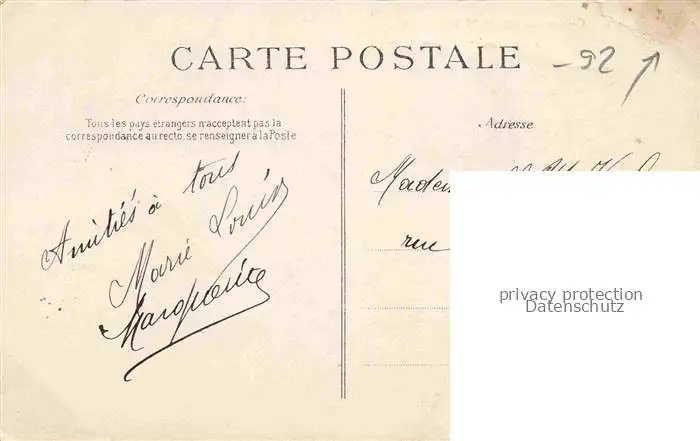 CARTE POSTALE
-92
Correspondance:
Tous les pays étrangers n'acceptent pas la
correspondance au recto, se renseigner à la Poste
Adresse
Amitiés à tous
Marie Louise
Marguerite
rue
privacy protection
Datenschutz